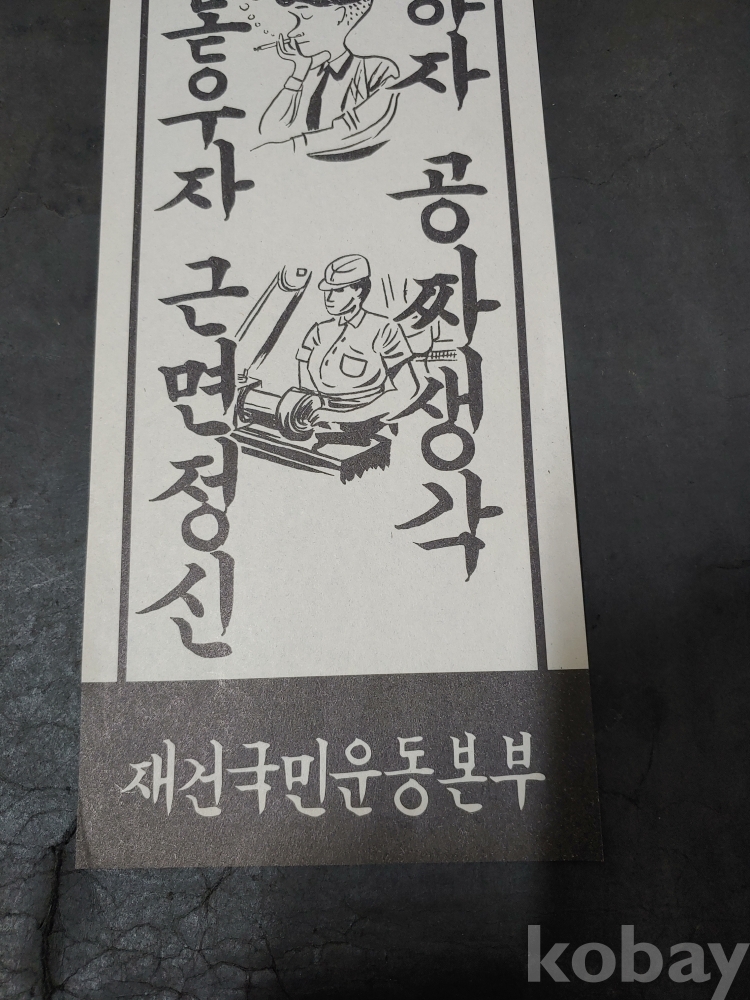 자 공짜생각
돋우자 근면정신
재건국민운동본부
kobay